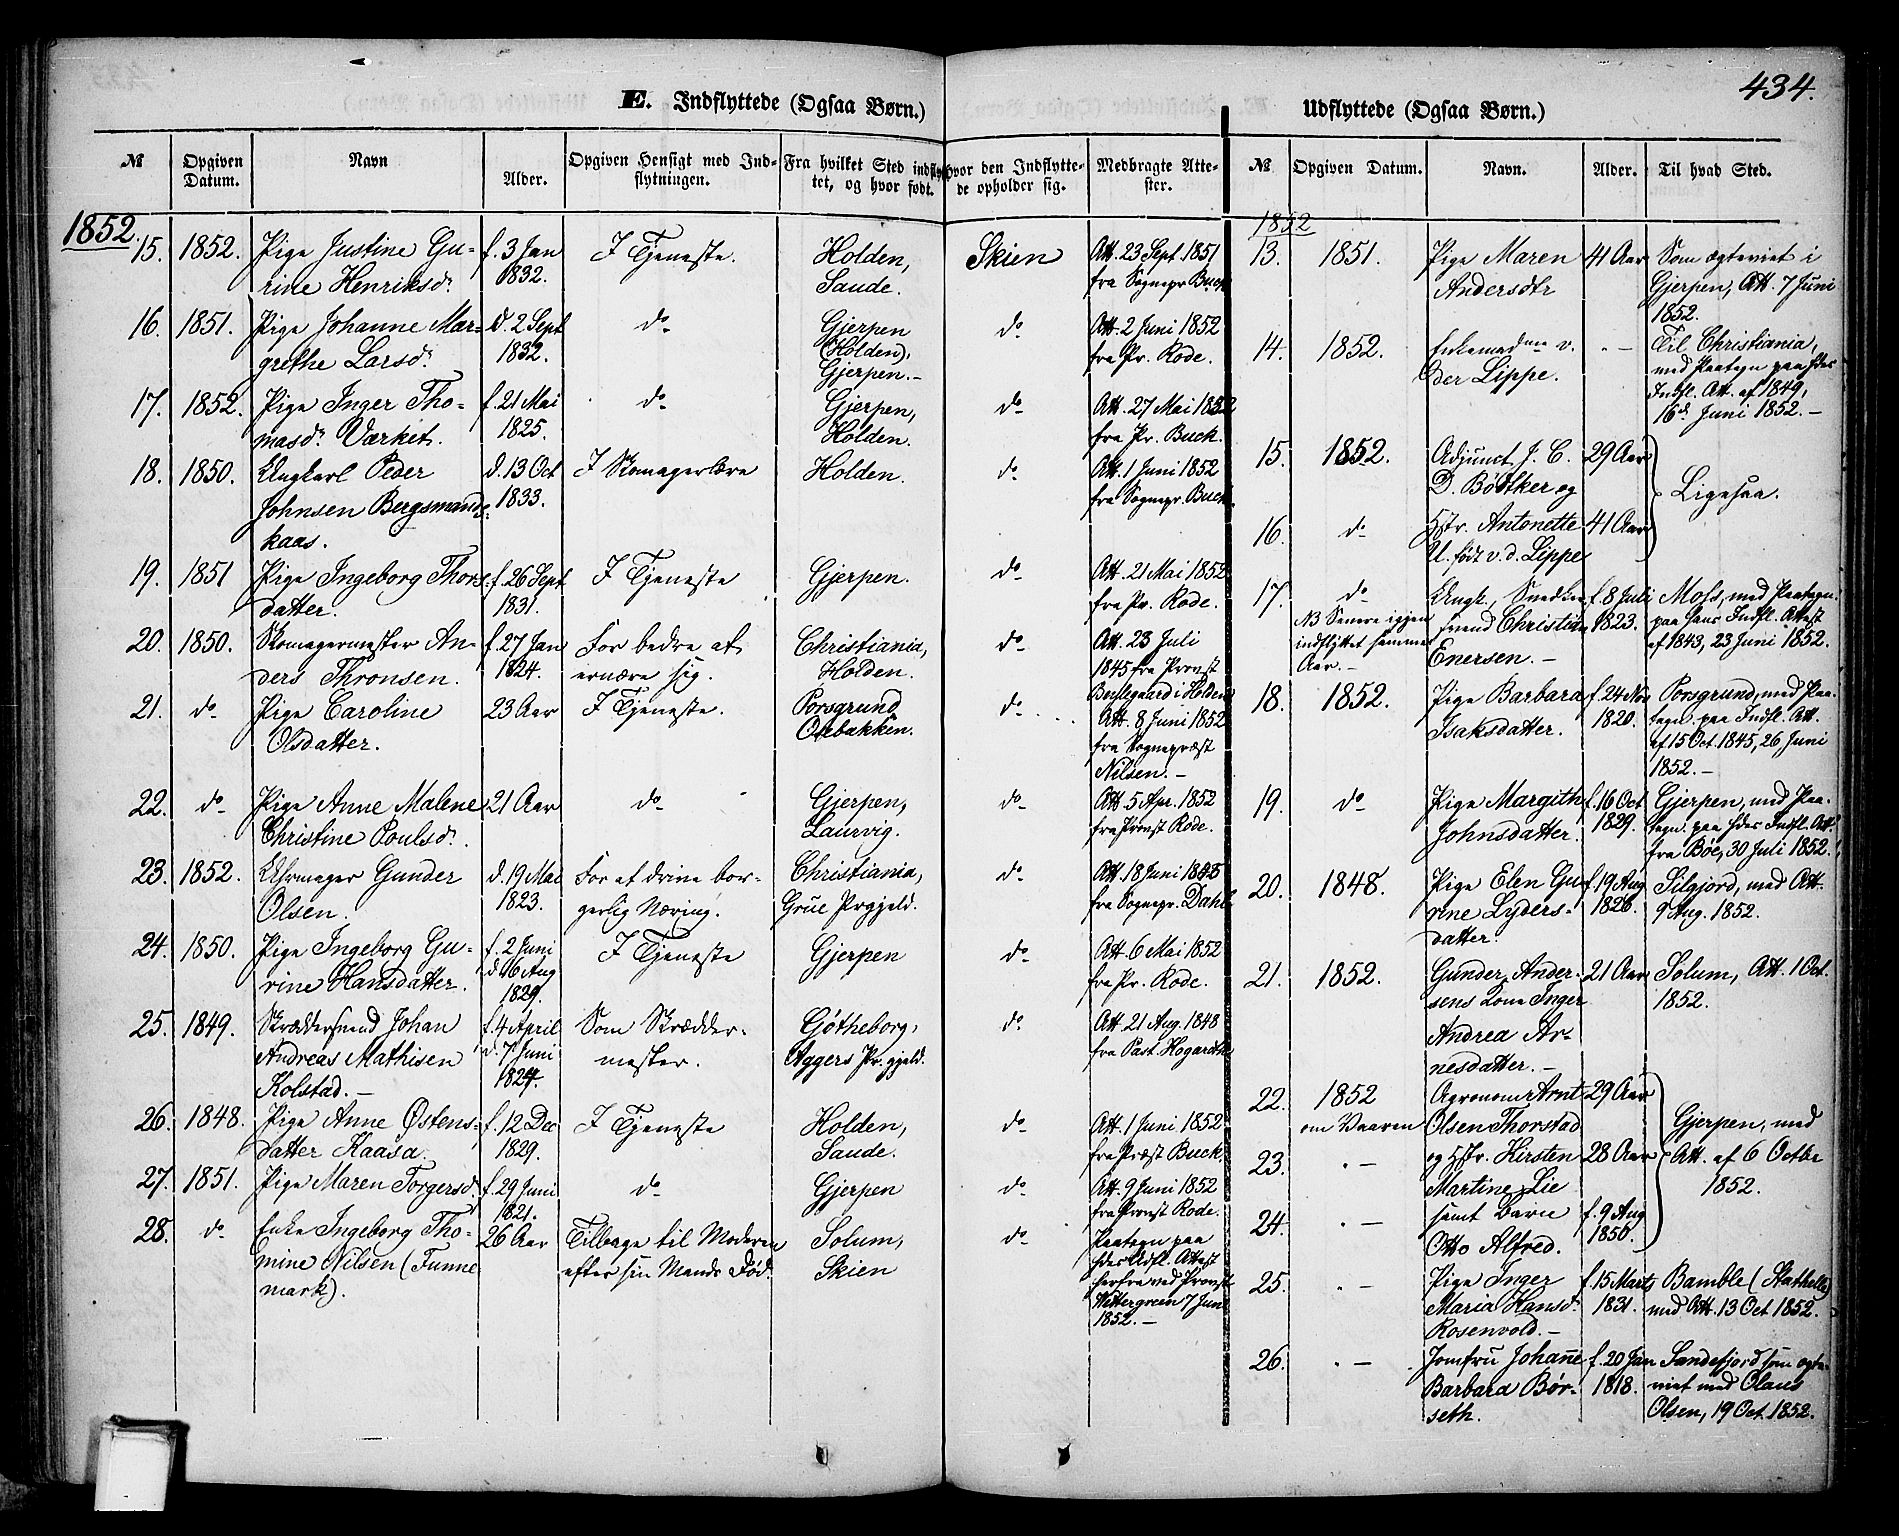 434.
E. Indflyttede (Ogsaa Børn.)
Udflyttede (Ogsaa Børn.)
№ Opgiven Datum. Navn Alder. Opgiven Hensigt med Indflytningen. Fra hvilket Sted indflyttet, og hvor født. Hvor den Indflyttede opholder sig. Medbragte Attester.
1852.
15. 1852. Pige Justine Gu- f. 3 Jan I Tjeneste. Holden, Skien Att. 23 Sept. 1851
rine Henriksd. 1832. Saude. fra Sognepr. Buck
16. 1851. Pige Johanne Mar- d. 2 Sept do Gjerpen do Att. 2 Juni 1852
grethe Larsd. 1832. (Holden), fra Pr. Rode.
Gjerpen.-
17. 1852. Pige Inger Tho- f. 21 Mai do Gjerpen, do Att. 27 Mai 1852
masd. Værket. 1825. Holden. fra Pr. Buck.
18. 1850. Ungkarl Peder d. 13 Oct I Skomagerlære Holden. do Att. 1 Juni 1852
Johnsen Bergsmands- 1833. fra Sognepr. Buck.
kaas.
19. 1851 Pige Ingeborg Thors- f. 26 Sept I Tjeneste Gjerpen. do Att. 21 Mai 1852
datter. 1831. fra Pr. Rode.
20. 1850. Skomagermester An- f. 27 Jan For bedre at Christiania, do Att. 23 Juli
ders Thronsen. 1824. ernære sig. Holden. 1845 fra Provst
i Holden
21. do Pige Caroline 23 Aar I Tjeneste. Porsgrund do Att. 8 Juni 1852
Olsdatter. fra Sognepræst
Nilsen.-
22. do Pige Anne Malene 21 Aar do Gjerpen, do Att. 5 Apr. 1852
Christine Poulsd. Laurvig. fra Provst Rode.
23. 1852. Uhrmager Gunder d. 19 Mai For at drive bor- Christiania, do Att. 18 Juni 1845
Olsen. 1823. gerlig Næring. Grue Prgjeld. fra Sognepr. Dahl
24. 1850. Pige Ingeborg Gu- f. 2 Juni I Tjeneste Gjerpen do Att. 6 Mai 1852
rine Hansdatter. d. 16 Aug fra Pr. Rode.
1829.
25. 1849. Skræddersvend Johan f. 4 April Som Skrædder- Gøtheborg, do Att. 21 Aug. 1848
Andreas Mathisen d. 7 Juni mester. Aggers Pr.gjeld. fra Past. Hogarth
Kolstad.- 1824.
26. 1848. Pige Anne Østens- f. 12 Dec I Tjeneste Holden, do Att. 1 Juni 1852
datter Kaasa. 1829. Saude. fra Præst Buck.
27. 1851. Pige Maren Torgersd. f. 29 Juni do Gjerpen do Att. 9 Juni 1852
1821. fra Provst Rode.
28. do Enke Ingeborg Tho- 26 Aar Tilbage til Moderen Solum, do Paategn paa
mine Nilsen (Funne- efter sin Mands Død. Skien hdes Udfl. Attest
mark). herfra ved Provst
7 Juni
1852.-
№ Opgiven Datum. Navn. Alder. Til hvad Sted.
1852
13. 1851. Pige Maren 41 Aar Som ægteviet i
Andersdtr Gjerpen, Att. 7 Juni
1852.
14. 1852. Enkemadme v. " - Til Christiania,
der Lippe. med Paategn paa hdes
Indfl. Att. af 1849,
16d. Juni 1852.-
15. 1852. Adjunct J. C. 29 Aar Ligesaa.
D. Bøttker og
16. do Hstr. Antonette 41 Aar
U. født v. d. Lippe
17. do Ungk., Snedker- f. 8 Juli Moss, med Paategn.
NB Senere igjen svend Christian 1823. paa hans Indfl. Attest
indflyttet samme Enersen.- af 1843, 23 Juni 1852.
Aar.-
18. 1852. Pige Barbara f. 24 Nov Porsgrund, med Paa-
Isaksdatter. 1820. tegn. paa Indfl. Att.
af 15 Oct. 1845, 26 Juni
1852.-
19. do Pige Margith f. 16 Oct Gjerpen, med Paa-
Johnsdatter. 1829. tegn. paa hdes Indfl. Att.
fra Bøe, 30 Juli 1852.
20. 1848. Pige Elen Gu- f. 19 Aug Silgjord, med Att.
rine Lyders- 1828. 9 Aug. 1852.
datter.
21. 1852. Gunder Ander- 21 Aar Solum, Att. 1 Oct.
sens Kone Inger 1852.
Andrea Ar-
nesdatter.-
22. 1852 Agronom Arnt 29 Aar Gjerpen, med
om Vaaren Olsen Thorstad Att. af 6 Octbe
23. " - og Hstr. Kirsten 28 Aar 1852.
Martine Lie
24. " - samt Barn f. 9 Aug
Otto Alfred. 1850.
25. " - Pige Inger f. 15 Marts Bamble (Stathelle)
Maria Hansd. 1831. med Att. 13 Oct 1852.
Rosenvold.-
26. " - Jomfru Johanne f. 20 Jan Sandefjord som ægte-
Barbara Bør- 1818. viet med Olaus
seth. Olsen, 19 Oct. 1852.